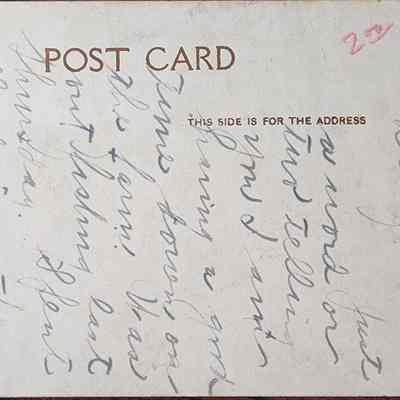 POST CARD
2 00
THIS SIDE IS FOR THE ADDRESS
Just
a word or
two telling
you I am
having a good
time down on
the farm. Was
out fishing last
Thursday. Spent